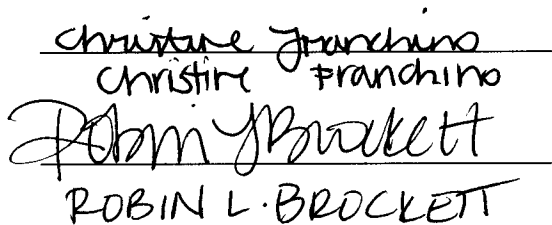 Christine Franchino
Christine Franchino
Robin L Brockett
ROBIN L. BROCKETT